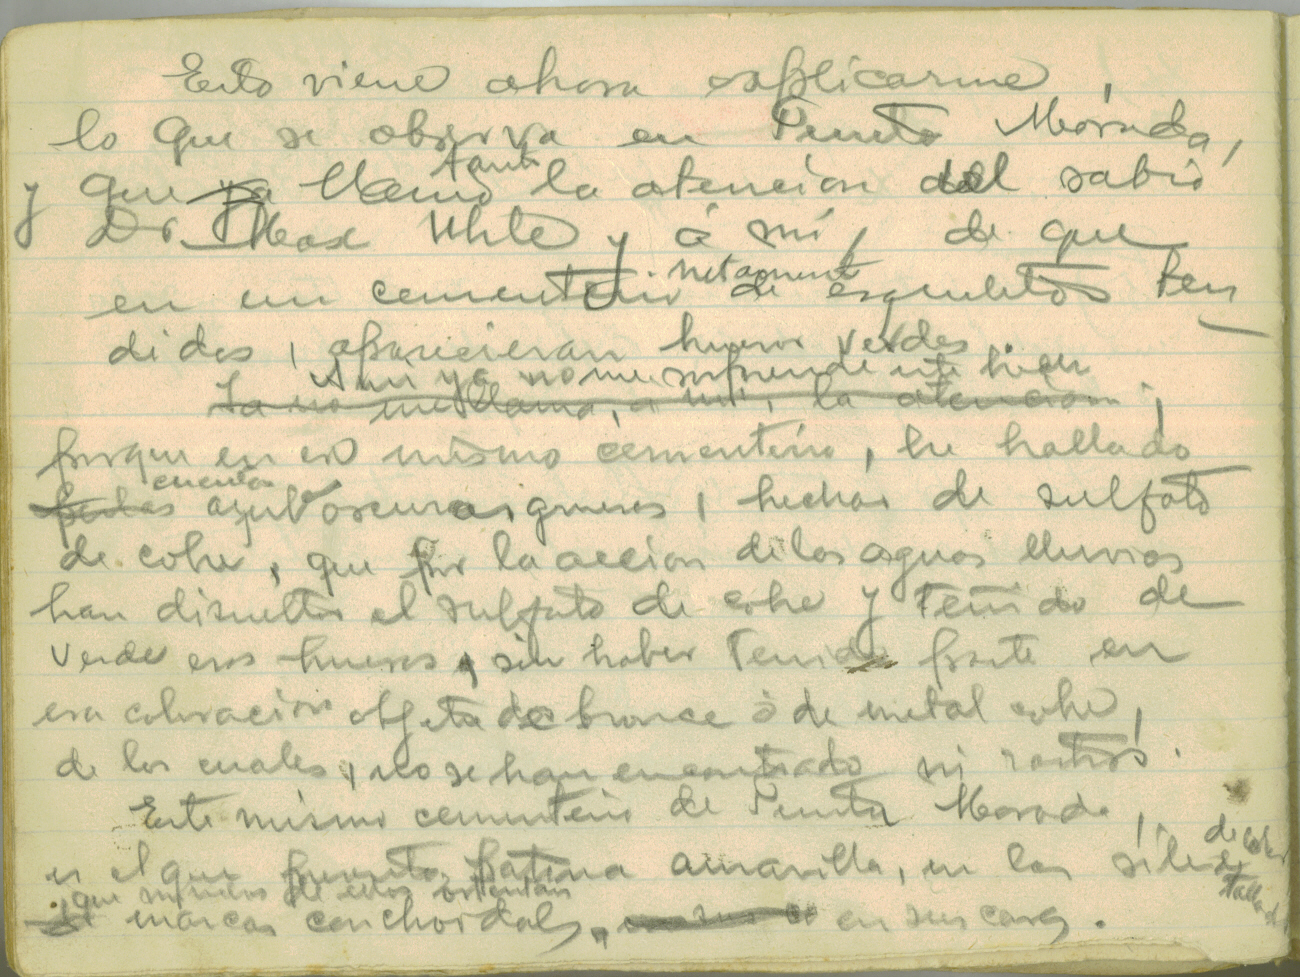 Esto viene ahora esplicarme,
lo que se observa en Punta Morada,
tanto
y que ya llamó la atencion del sabio
Dr. Max Uhle y á mí, de que
netamente
en un cementerio de esqueletos ten
didos, aparecieran huesos verdes
A mi ya no me sorprende este bien
Ya no me llama, a mi, la atencion;
porque en ese mismo cementerio, he hallado
cuentas
azul oscuras, gruesas, hechas de sulfato
de cobre, que por la accion de las aguas lluvias
han disuelto el sulfato de cobre y teñido de
verde esos huesos, sin haber tenido parte en
esa coloracion objeto de bronce ó de metal cobre,
de los cuales, no se han encontrado ni rastros.
Este mismo cementerio de Punta Morada,
es el que presenta patina amarilla, en los silex
de color
tallados
que muchos de ellos ostentan
marcas conchoidales, en sus caras.